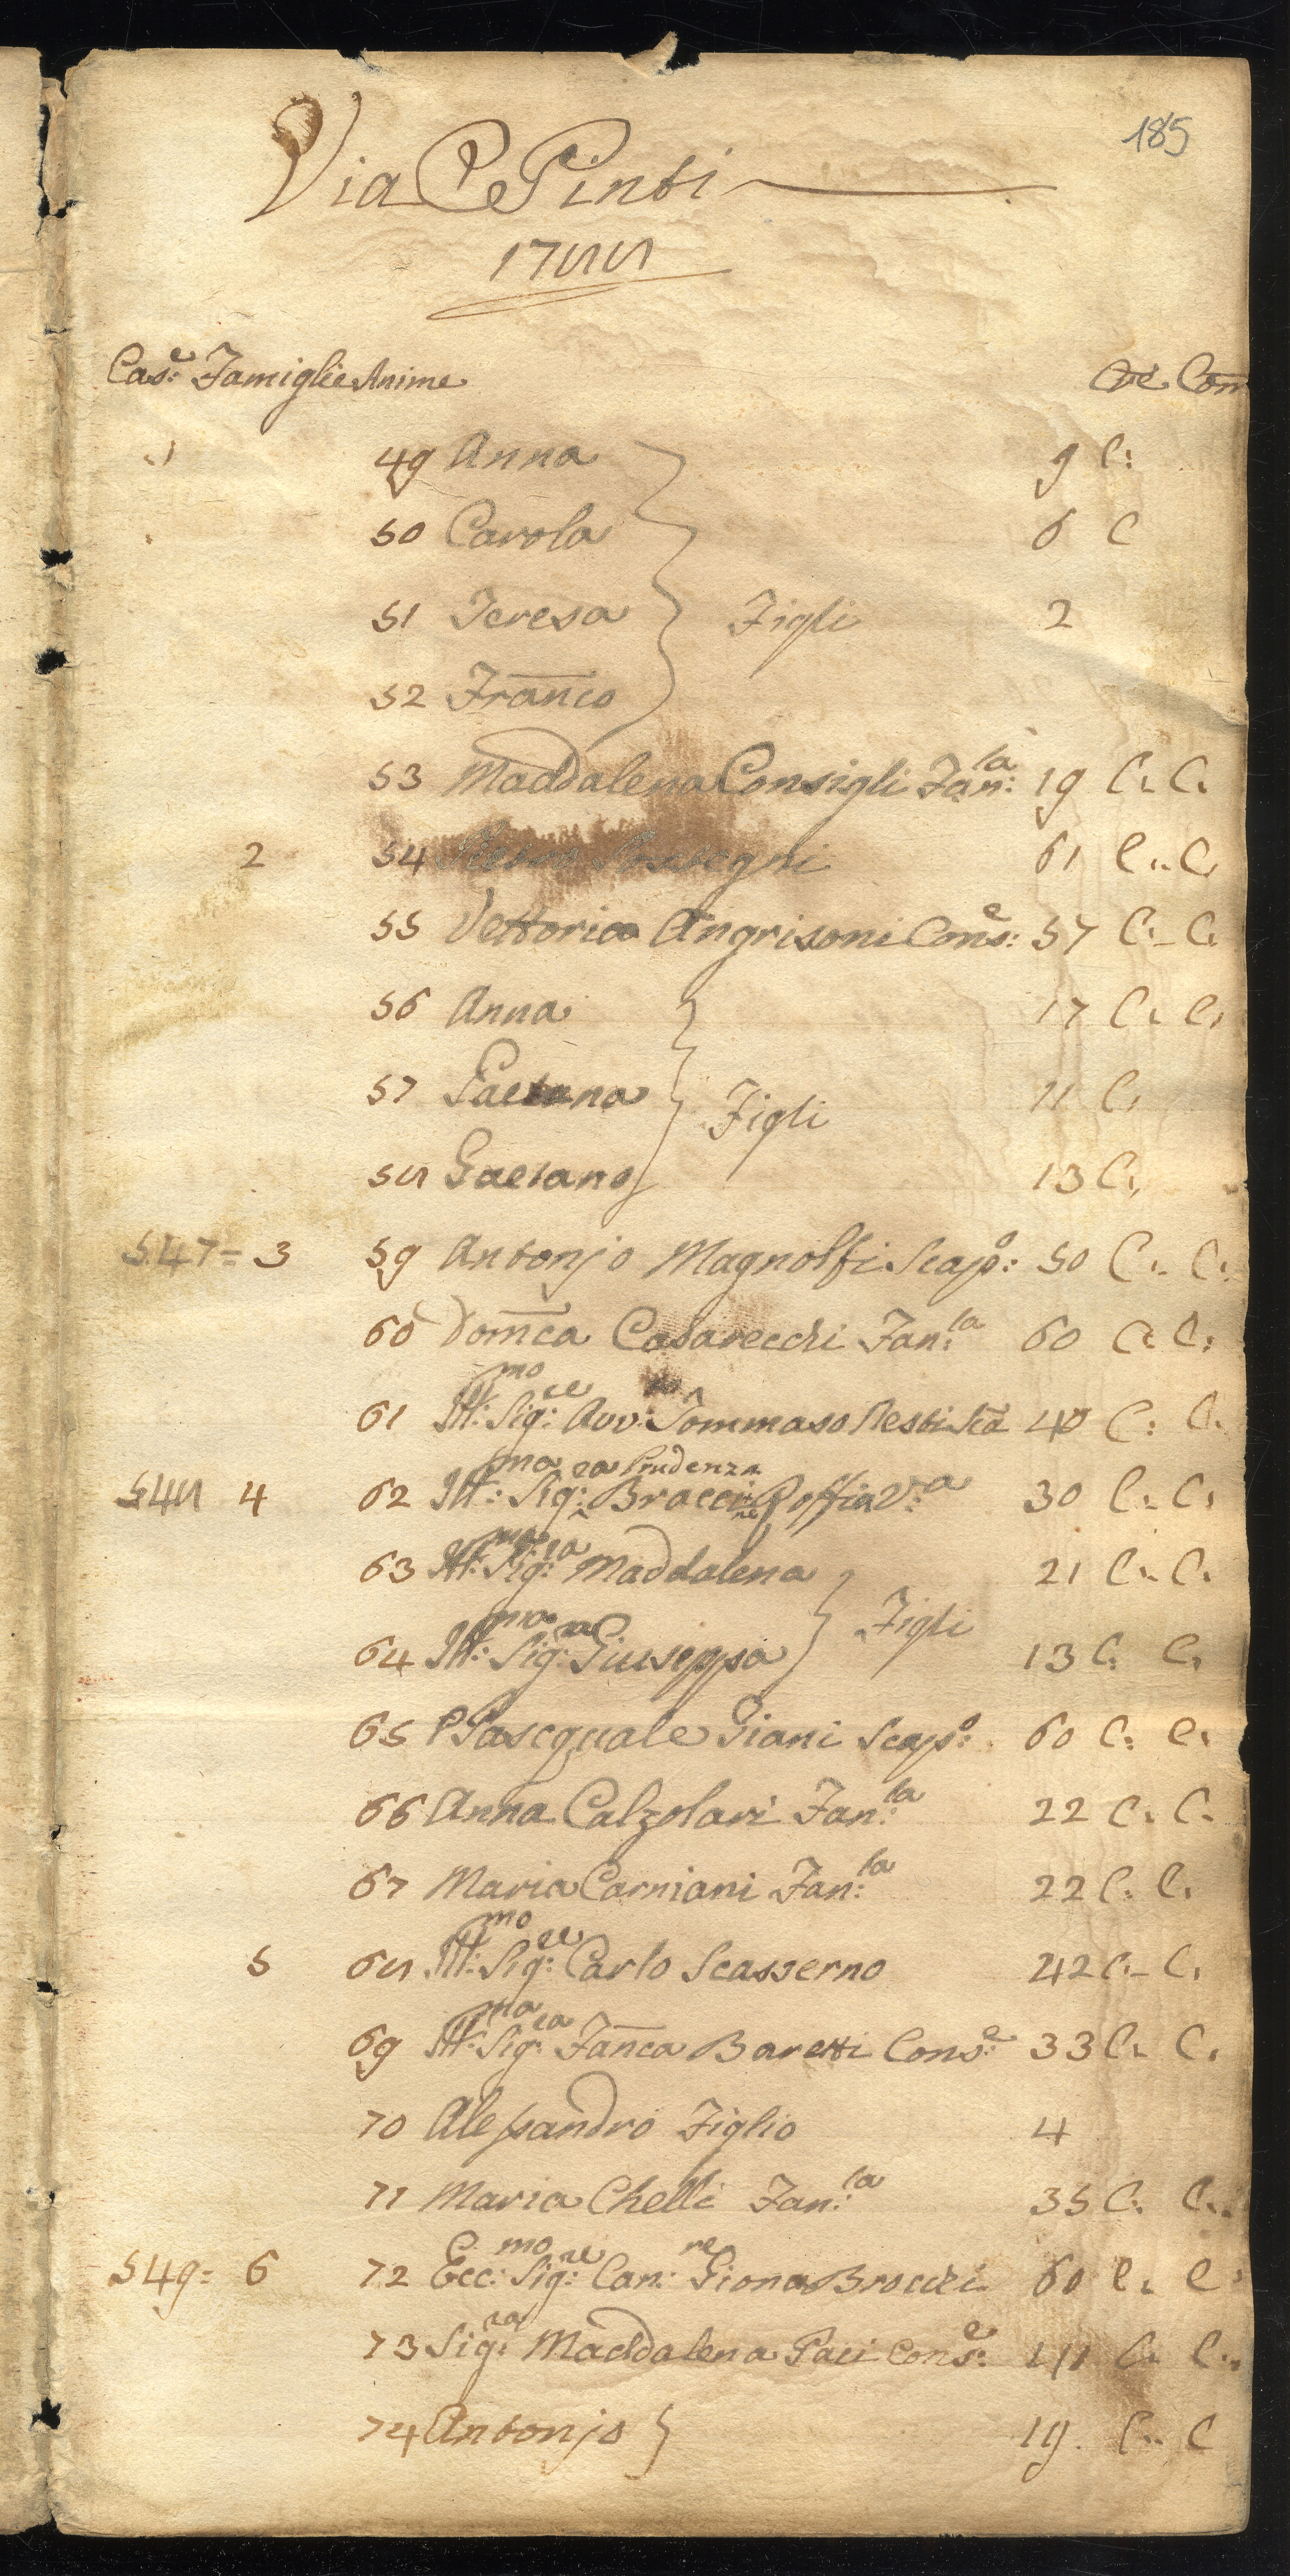 185
Via De Pinti
1788
Cas:e Famiglie Anime Cre Com
1 49 Anna 9 C:
50 Carola 6 C
51 Teresa Figli 2
52 Franco
53 Maddalena Consigli Fan:la 19 C. C.
2 54 61 C.. C.
55 Vettoria Angrisoni Cons:e 57 C. C.
56 Anna 17 C. C.
57 Gaetana Figli 11 C.
58 Gaetano 13 C.
547= 3 59 Antonjo Magnolfi Scap:o 50 C.. C.
60 Domca Casarecchi Fan:la 60 C. C:
61 Ill:mo Sig:re Avv: Tommaso Resti 40 C: C.
Prudenza
548 4 62 Ill:ma Sig:ra Bracci ne Roffia V:a 30 C.. C.
63 Ill:ma Sig:ra Maddalena 21 C.. C.
Figli
64 Ill:ma Sig:ra Giuseppa 13 C: C.
65 P Pascquale Giani Scap:o 60 C: C.
66 Anna Calzolari Fan:la 22 C. C.
67 Maria Carniani Fan:la 22 C. C.
5 68 Ill:mo Sig:re Carlo Scasserno 42 C. C.
69 Ill:ma Sig:ra Fanca Baretti Cons:e 33 C. C.
70 Alessandro Figlio 4
71 Maria Chelli Fan:la 35 C. C..
549= 6 72 Ecc:mo Sig:re Can:re Giona Brocchi 60 C. C:
73 Sig:ra Maddalena Paci Cons:e C. C..
74 Antonjo 19. C.. C